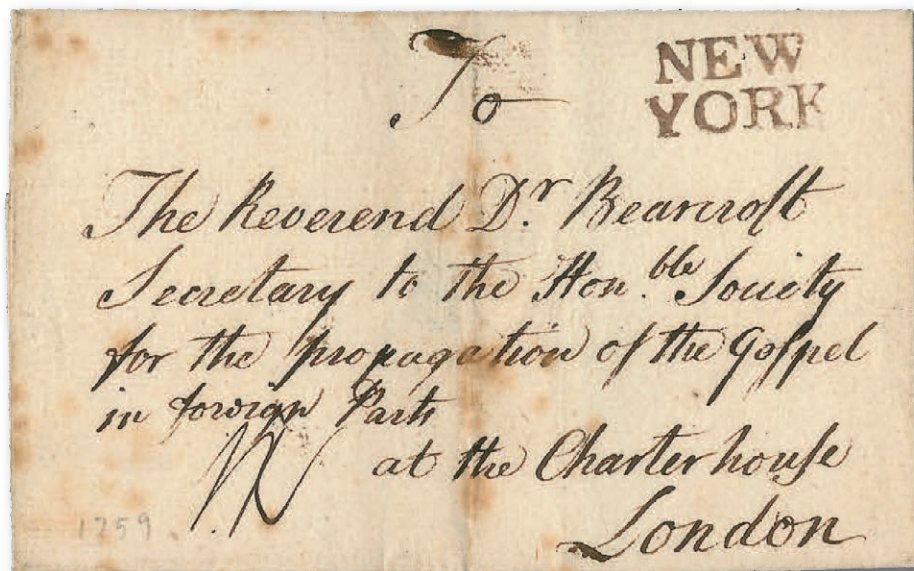 NEW
YORK
To
The Reverend Dr. Bearcroft
Secretary to the Hon.ble Society
for the propagation of the Gospel
in foreign Parts
at the Charterhouse
London
1759